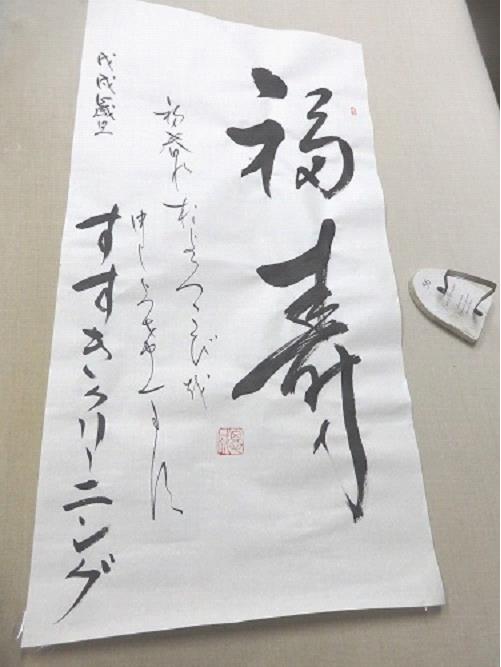 福寿
初春のおよろこびを
申しあげます
すすきクリーニング
戊戌歳旦